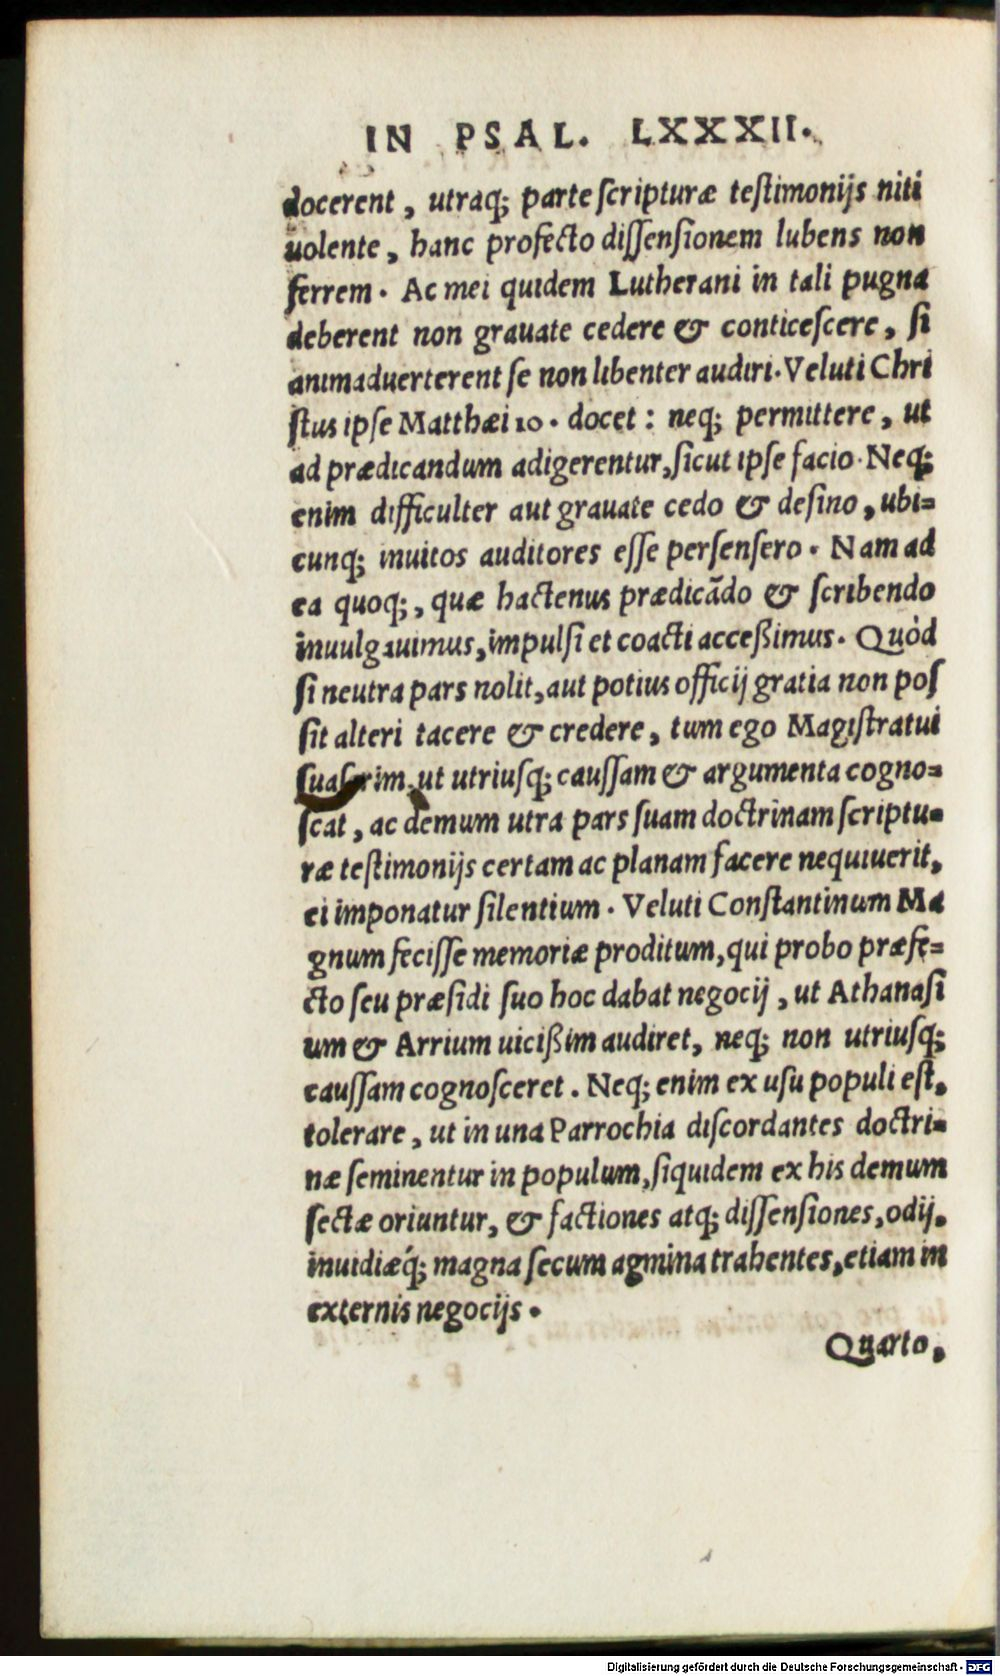 IN PSAL. LXXXII.
docerent, utraq; parte ſcripturæ teſtimonijs niti
uolente, hanc profecto diſſenſionem lubens non
ferrem. Ac mei quidem Lutherani in tali pugna
deberent non grauate cedere & conticeſcere, ſi
animaduerterent ſe non libenter audiri. Veluti Chri
ſtus ipſe Matthæi 10. docet: neq; permittere, ut
ad prædicandum adigerentur, ſicut ipſe facio. Neq;
enim difficulter aut grauate cedo & deſino, ubi=
cunq; inuitos auditores eſſe perſenſero. Nam ad
ea quoq;, quæ hactenus prædicãdo & ſcribendo
inuulgauimus, impulſi et coacti acceßimus. Quòd
ſi neutra pars nolit, aut potius officij gratia non poſ
ſit alteri tacere & credere, tum ego Magiſtratui
ſuaſerim, ut utriuſq; cauſſam & argumenta cogno=
ſcat, ac demum utra pars ſuam doctrinam ſcriptu=
ræ teſtimonijs certam ac planam facere nequiuerit,
ei imponatur ſilentium. Veluti Conſtantinum Ma
gnum feciſſe memoriæ proditum, qui probo præfe=
cto ſeu præſidi ſuo hoc dabat negocij, ut Athanaſi
um & Arrium uicißim audiret, neq; non utriuſq;
cauſſam cognoſceret. Neq; enim ex uſu populi eſt,
tolerare, ut in una Parrochia diſcordantes doctri=
næ ſeminentur in populum, ſiquidem ex his demum
ſectæ oriuntur, & factiones atq; diſſenſiones, odij,
inuidiæq́; magna ſecum agmina trahentes, etiam in
externis negocijs.
Quarto,
Digitalisierung gefördert durch die Deutsche Forschungsgemeinschaft - DFG